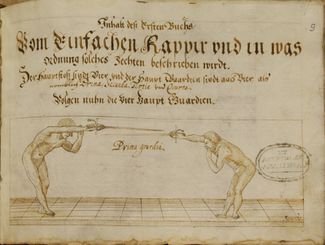 9
Inhalt deß Ersten Buchs
Vom Einfachen Rappir vnd in was
ordnung solches Fechten beschrieben wirdt.
Der Hauptstöß seindt Vier vnd der Haupt Guardien seindt auch Vier als
Prima Secunda Tertie vnd Quarta.
Volgen nuhn die Vier Haupt Guardien.
Prima guardia.